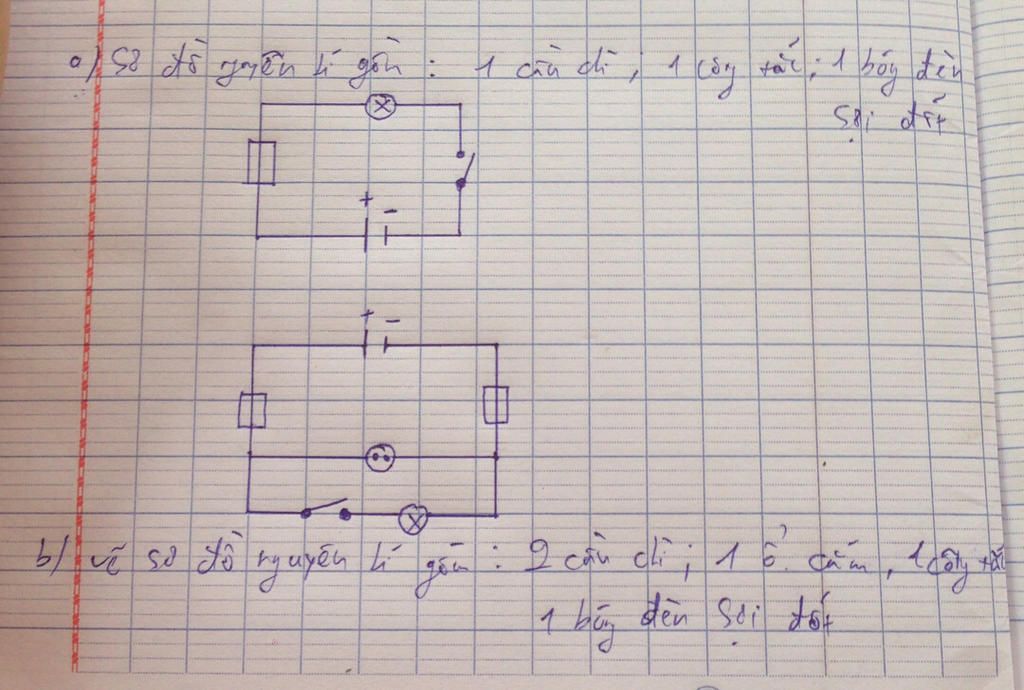 a) Sơ đồ nguyên lí gồm : 1 cầu chì ; 1 công tắc ; 1 bóng đèn
sợi đốt
+ -
+ -
b) vẽ sơ đồ nguyên lí gồm : 2 cầu chì ; 1 ổ cắm , 1 công tắc
1 bóng đèn sợi đốt